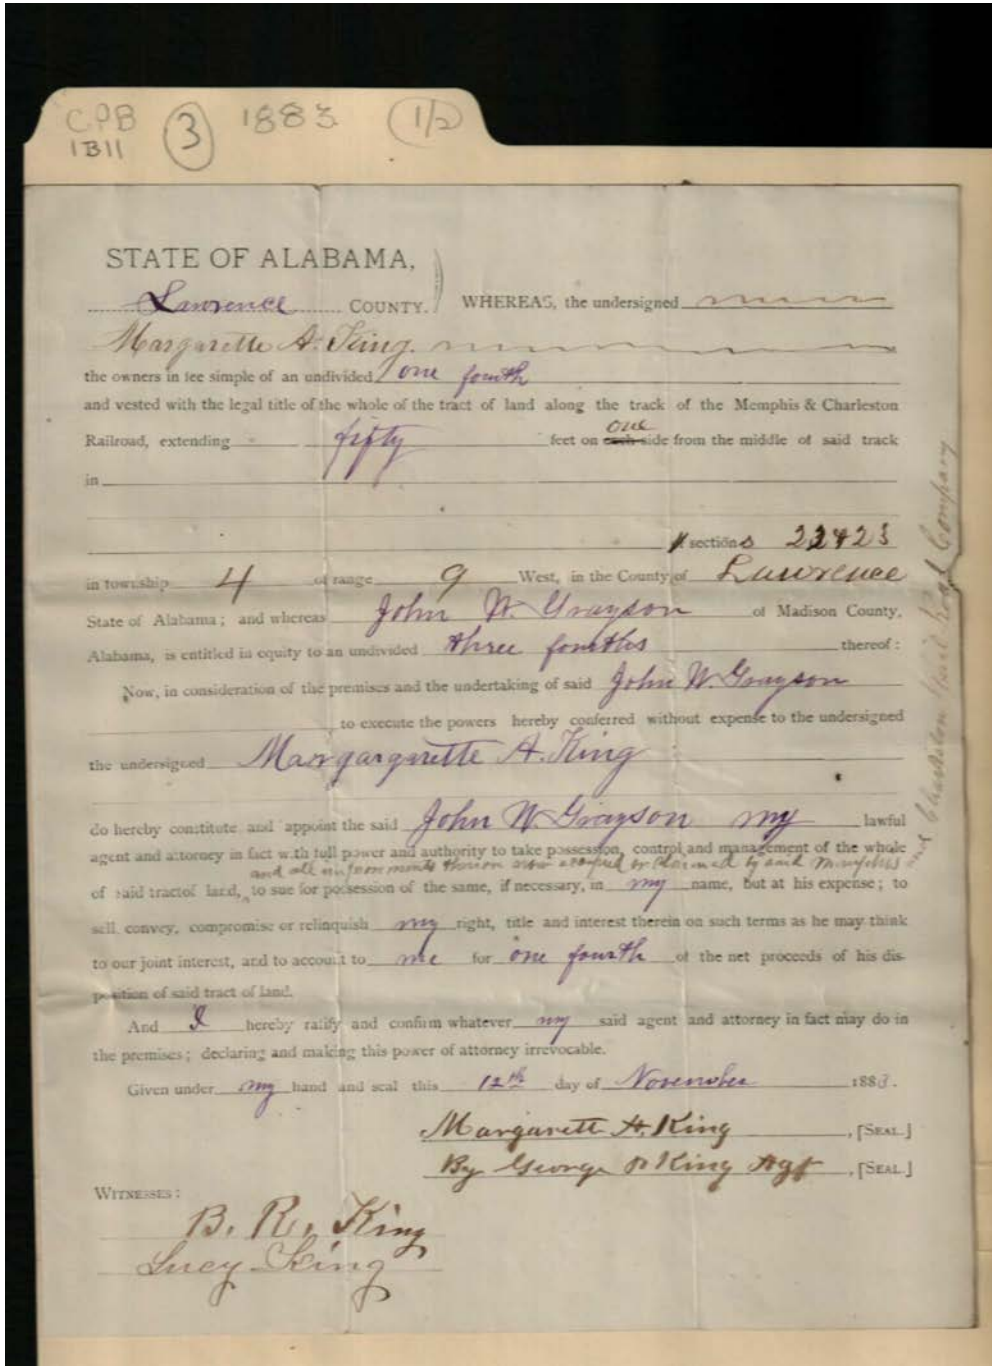 CPB
1B11
3
1883
(1/2)
STATE OF ALABAMA,
Lawrence COUNTY. WHEREAS, the undersigned
Margarette A. King.
the owners in fee simple of an undivided one fourth
and vested with the legal title of the whole of the tract of land along the track of the Memphis & Charleston
one
Railroad, extending fifty feet on each side from the middle of said track
in
sections 22 & 23
in township 4 of range 9 West, in the County of Lawrence
State of Alabama; and whereas John W. Grayson of Madison County,
Alabama, is entitled in equity to an undivided three fourths thereof:
Now, in consideration of the premises and the undertaking of said John W. Grayson
to execute the powers hereby conferred without expense to the undersigned
the undersigned Margargrette A. King
do hereby constitute and appoint the said John W. Grayson my lawful
agent and attorney in fact with full power and authority to take possession, control and management of the whole
and all thereon now occupied or claimed by said Memphis
and Charleston Rail Road Company
of said tract of land, to sue for possession of the same, if necessary, in my name, but at his expense; to
sell, convey, compromise or relinquish my right, title and interest therein on such terms as he may think
to our joint interest, and to account to me for one fourth of the net proceeds of his dis-
position of said tract of land.
And I hereby ratify and confirm whatever my said agent and attorney in fact may do in
the premises; declaring and making this power of attorney irrevocable.
Given under my hand and seal this 12th day of November 1883.
Margarett A. King, [SEAL.]
By George King Agt, [SEAL.]
WITNESSES:
B. R. King
Lucy King